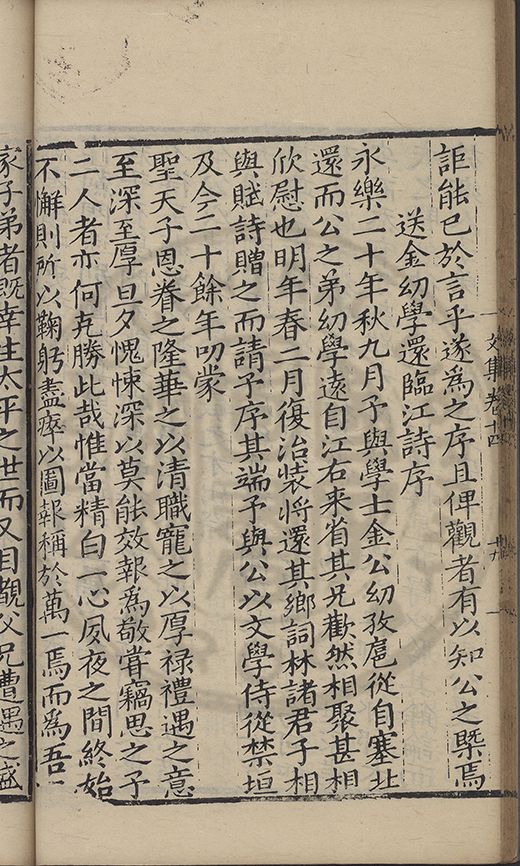 文集卷十四
十九
詎能已於言乎遂為之序且俾觀者有以知公之槩焉
送金幼學還臨江詩序
永樂二十年秋九月予與學士金公幼孜扈從自塞北
還而公之弟幼學遠自江右来省其兄歡然相聚甚相
欣慰也明年春二月復治裝將還其鄉詞林諸君子相
與賦詩贈之而請予序其端予與公以文學侍從禁垣
及今二十餘年叨蒙
聖天子恩眷之隆華之以清職寵之以厚禄禮遇之意
至深至厚旦夕愧悚深以莫能效報為敬甞竊思之予
二人者亦何克勝此哉惟當精白一心夙夜之間終始
不懈則所以鞠躬盡瘁以圖報稱於萬一焉而為吾
家子弟者既幸生太平之世而又目覩父兄遭遇之盛